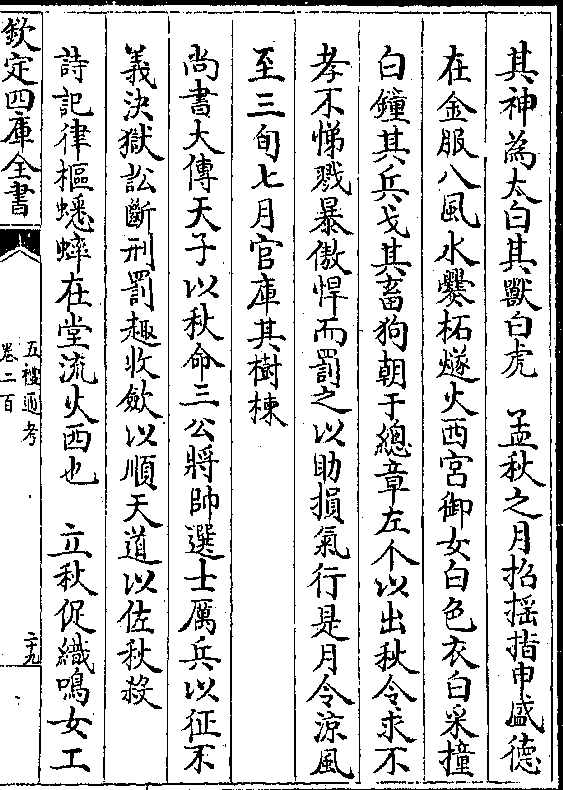 其神為太白其獸白虎　孟秋之月招搖指申盛德
在金服八風水爨柘燧火西宮御女白色衣白采撞
白鐘其兵戈其畜狗朝于總章左个以出秋令求不
孝不悌戮暴傲悍而罰之以助損氣行是月令涼風
至三旬七月官庫其樹楝
尚書大傳天子以秋命三公將帥選士厲兵以征不
義決獄訟斷刑罰趣收斂以順天道以佐秋殺
詩記律樞蟋蟀在堂流火西也　立秋促織鳴女工
欽定四庫全書
五禮通考
卷二百
二十九